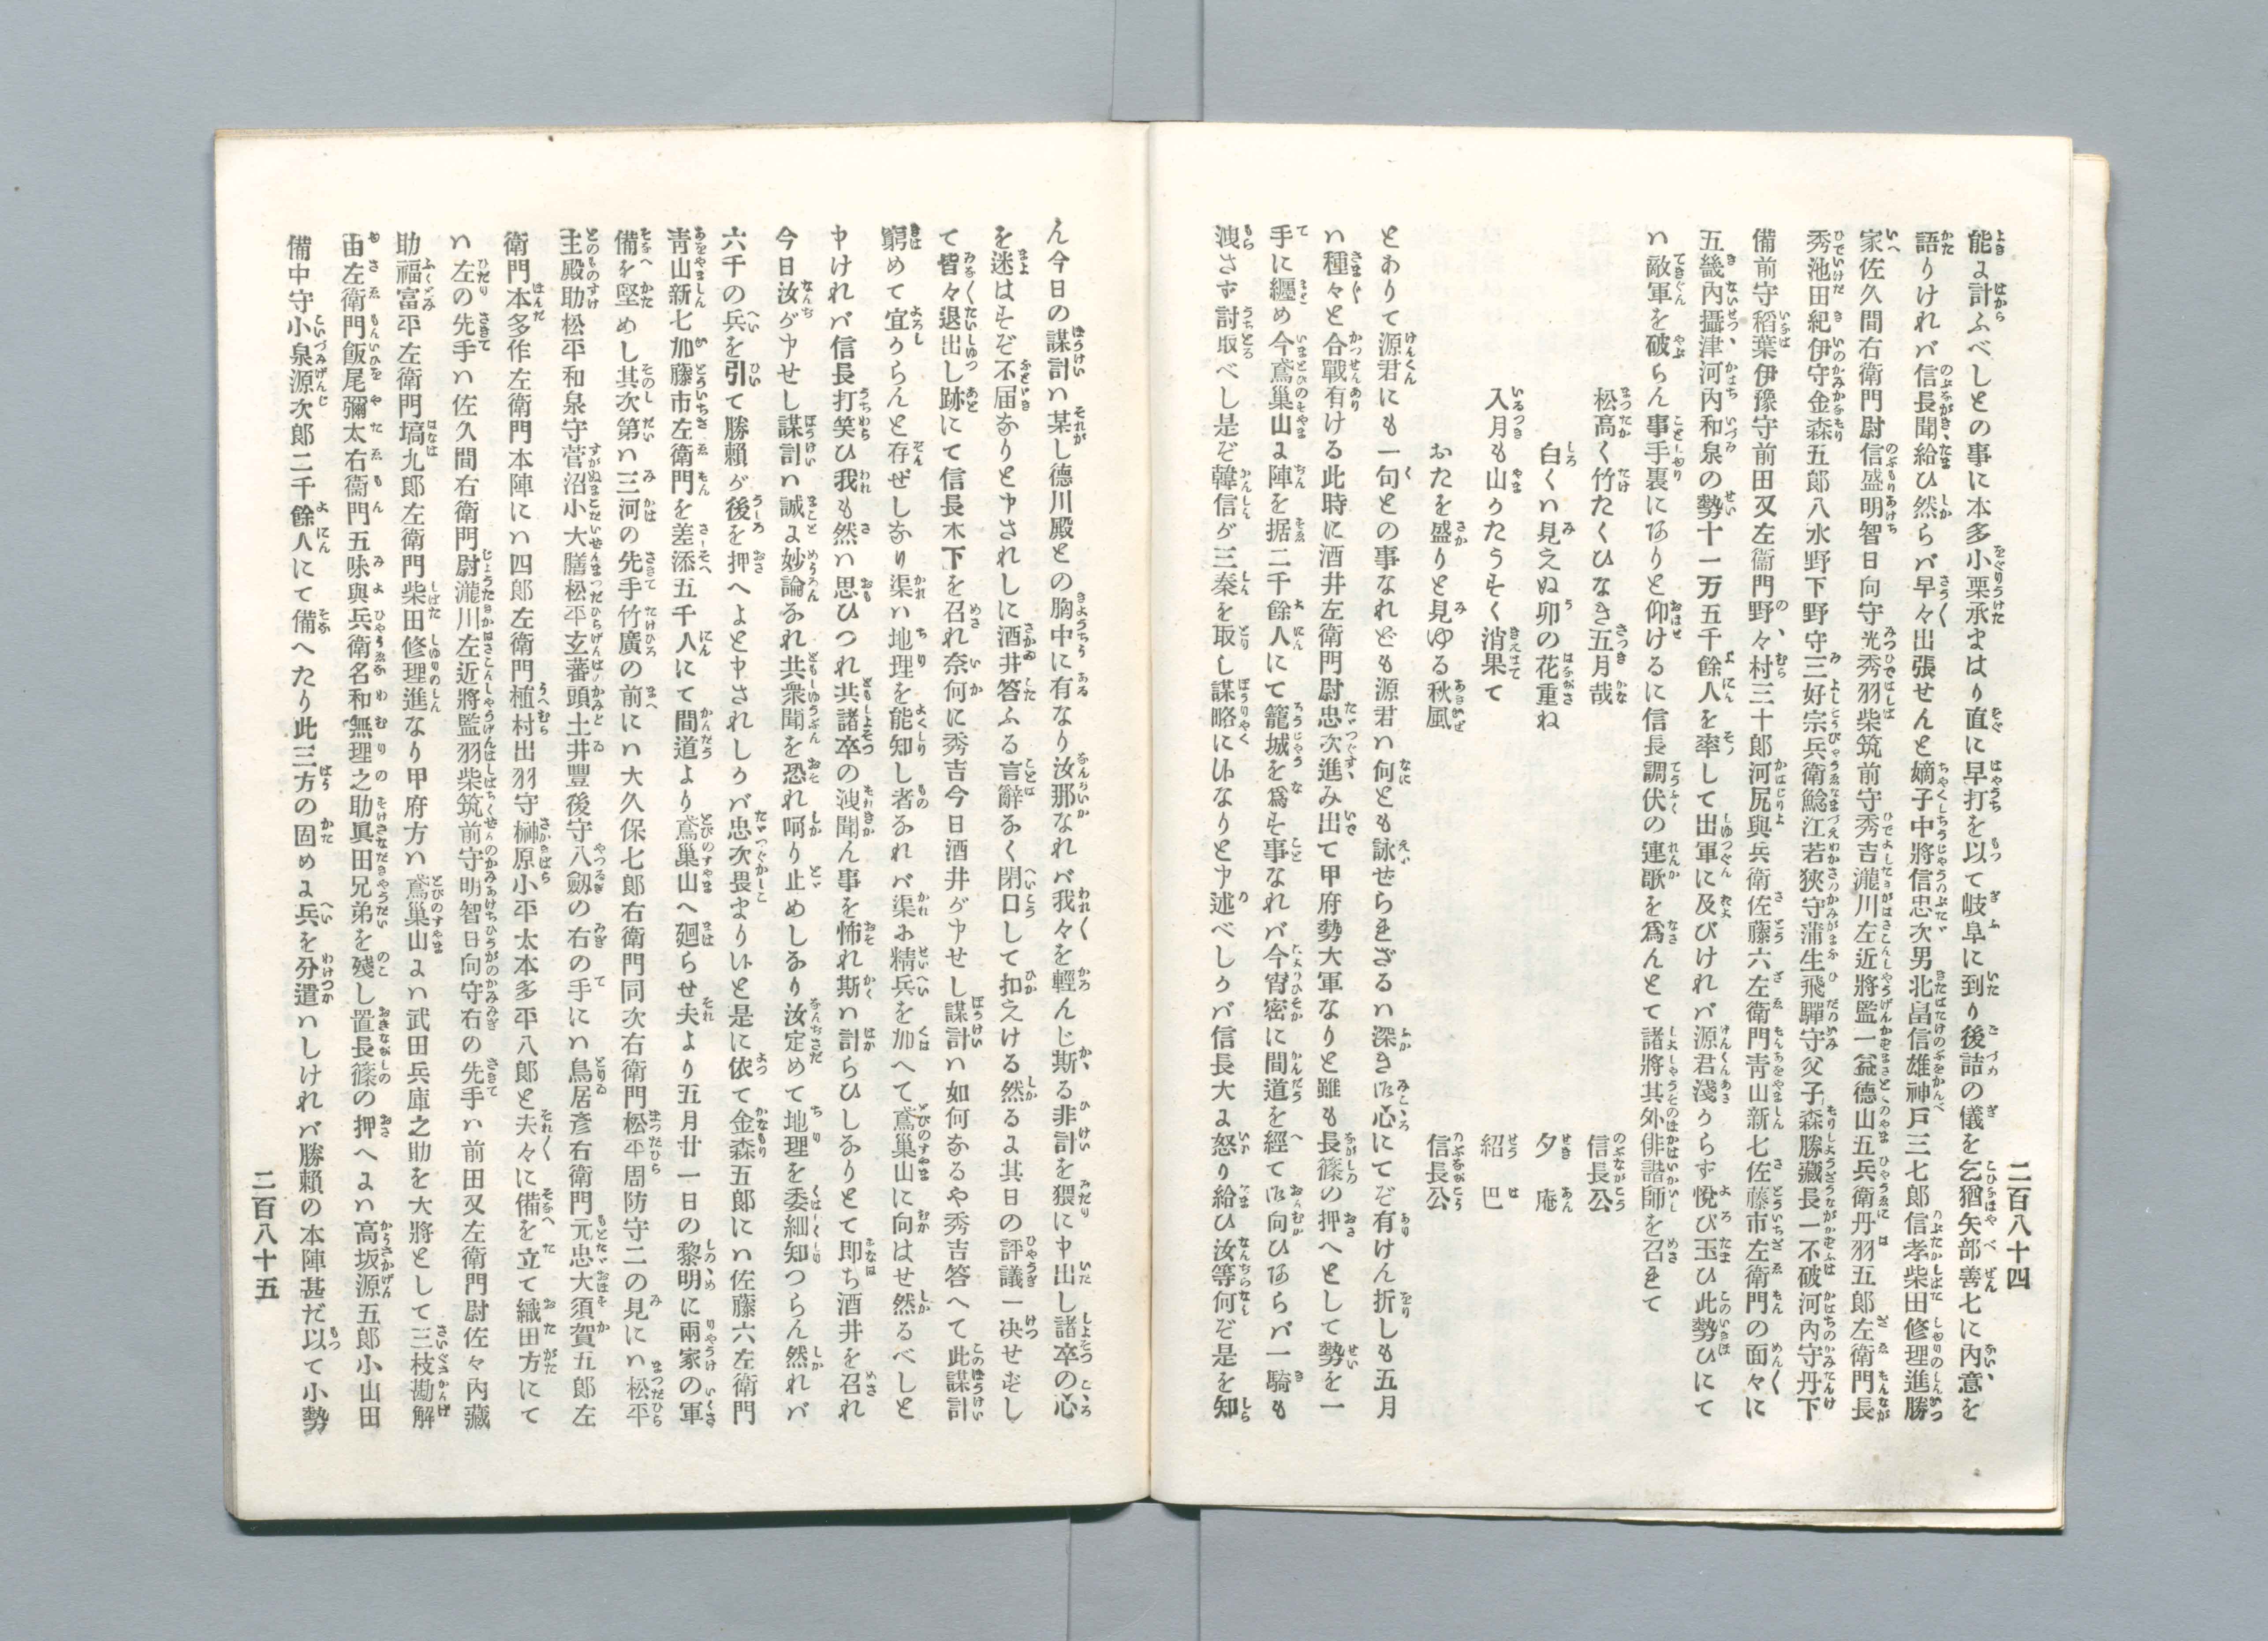 二百八十四
能よ計ふべしとの事に本多小栗承まはり直に早打を以て岐阜に到り後詰の儀を乞猶矢部善七に內意を
語りけれバ信長聞給ひ然らバ早々出張せんと嫡子中將信忠次男北畠信雄神戸三七郎信孝柴田修理進勝
家佐久間右衛門尉信盛明智日向守光秀羽柴筑前守秀吉瀧川左近將監一益德山五兵衛丹羽五郎左衛門長
秀池田紀伊守金森五郎八水野下野守三好宗兵衛鯰江若狹守蒲生飛驒守父子森勝藏長一不破河內守丹下
備前守稻葉伊豫守前田又左衞門野々村三十郎河尻與兵衛佐藤六左衛門靑山新七佐藤市左衛門の面々に
五畿內攝津河內和泉の勢十一万五千餘人を率して出軍に及びけれバ源君淺からす悅び玉ひ此勢ひにて
ハ敵軍を破らん事手裏にありと仰けるに信長調伏の連歌を爲んとて諸將其外俳諧師を召きて
松高く竹たくひなき五月哉　信長公
白くハ見えぬ卯の花重ね　夕庵
入月も山かたうすく消果て　紹巴
おたを盛りと見ゆる秋風　信長公
とありて源君にも一句との事なれども源君ハ何とも詠せらきざるハ深き御心にてぞ有けん折しも五月
ハ種々と合戰有ける此時に酒井左衛門尉忠次進み出て甲府勢大軍なりと雖も長篠の押へとして勢を一
手に纒め今鳶巢山よ陣を据二千餘人にて籠城を爲す事なれバ今宵密に間道を經て御向ひあらバ一騎も
洩さす討取べし是ぞ韓信が三秦を取し謀略に御なりと申述べしかバ信長大よ怒り給ひ汝等何ぞ是を知
ん今日の謀計ハ某し德川殿との胸中に有なり汝那なれバ我々を輕んじ斯る非計を猥に申出し諸卒の心
を迷はすぞ不届なりと申されしに酒井答ふる言辭なく閉口して扣えける然るよ其日の評議一决せずし
て皆々退出し跡にて信長木下を召れ奈何に秀吉今日酒井が申せし謀計ハ如何なるや秀吉答へて此謀計
窮めて宜からんと存ぜしなり渠ハ地理を能知し者なれバ渠お精兵を加へて鳶巢山に向はせ然るべしと
申けれバ信長打笑ひ我も然ハ思ひつれ共諸卒の洩聞ん事を怖れ斯ハ計らひしなりとて即ち酒井を召れ
今日汝が申せし謀計ハ誠よ妙論なれ共衆聞を恐れ呵り止めしなり汝定めて地理を委細知つらん然れバ
六千の兵を引て勝賴が後を押へよと申されしかバ忠次畏まりハと是に依て金森五郎にハ佐藤六左衛門
靑山新七加藤市左衛門を差添五千人にて間道より鳶巢山へ廻らせ夫より五月廿一日の黎明に兩家の軍
備を堅めし其次第ハ三河の先手竹廣の前にハ大久保七郎右衛門同次右衛門松平周防守二の見にハ松平
主殿助松平和泉守菅沼小大膳松平玄蕃頭土井豐後守八劔の右の手にハ鳥居彥右衛門元忠大須賀五郎左
衛門本多作左衛門本陣にハ四郎左衛門植村出羽守榊原小平太本多平八郎と夫々に備を立て織田方にて
ハ左の先手ハ佐久間右衛門尉瀧川左近將監羽柴筑前守明智日向守右の先手ハ前田又左衛門尉佐々內藏
助福富平左衛門塙九郎左衛門柴田修理進なり甲府方ハ鳶巢山よハ武田兵庫之助を大將として三枝勘解
由左衛門飯尾彌太右衞門五味與兵衛名和無理之助眞田兄弟を殘し置長篠の押へよハ高坂源五郎小山田
備中守小泉源次郎二千餘人にて備へたり此三方の固めよ兵を分遣ハしけれバ勝賴の本陣甚だ以て小勢
二百八十五